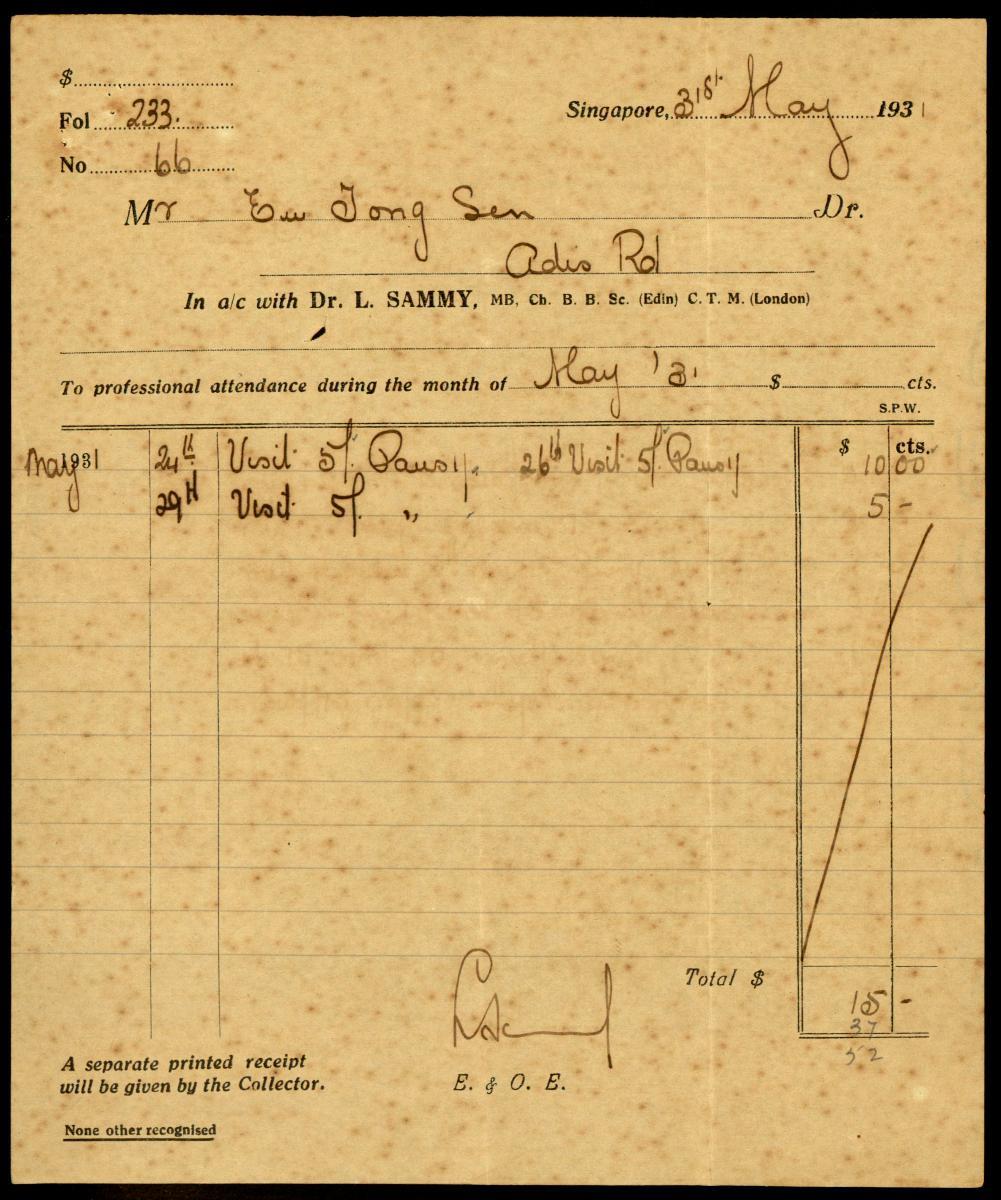 $
Fol 233.
No 66
Singapore, 31st May 1931
Mr Eu Tong Sen Dr.
Adis Rd
In a/c with Dr. L. SAMMY, MB, Ch. B. B. Sc. (Edin) C. T. M. (London)
To professional attendance during the month of May '31 $ cts.
S.P.W.
$ cts.
May 1931 24th Visit 5/. Pansy. 26th Visit 5/. Pansy 10 00
29th Visit 5/. " 5 -
Total $ 15 -
37
52
A separate printed receipt
will be given by the Collector.
E. & O. E.
None other recognised